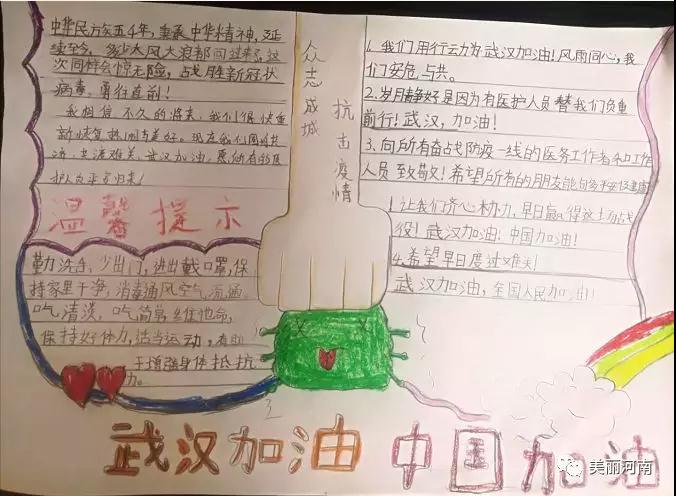 中华民族五千年，秉承中华精神，延
续至今，多少大风大浪都闯过来了，这
次同样会惊无险，战胜新冠状
病毒，勇往直前！
我相信不久的将来，我们很快重
新恢复热闹与美好。现在我们同舟共
济，共渡难关，武汉加油，愿所有的医
护人员平安归来！
温馨提示
勤洗手，少出门，进出戴口罩，保
持家里干净，消毒通风空气流通。
吃清淡，吃简单，维他命，
保持好体力，适当运动，有助
于增强身体抵抗
力。
众志成城
抗击疫情
1、我们用行动力为武汉加油！风雨同心，我
们安危与共。
2.岁月静好是因为有医护人员替我们负重
前行！武汉，加油！
3、向所有奋战防疫一线的医务工作者和工作
人员致敬！希望所有的朋友能够多平安健康
！让我们齐心协力，早日赢得这场战
役！武汉加油！中国加油！
4、希望早日度过难关！
武汉加油，全国人民加油！
武汉加油 中国加油
美丽河南